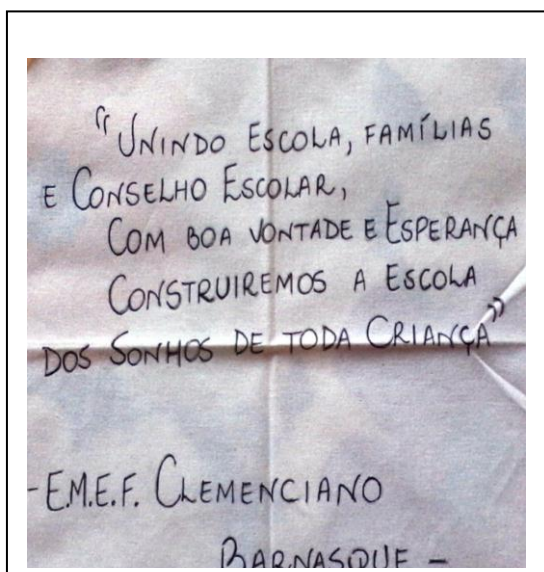 "UNINDO ESCOLA, FAMÍLIAS
E CONSELHO ESCOLAR,
COM BOA VONTADE E ESPERANÇA
CONSTRUIREMOS A ESCOLA
DOS SONHOS DE TODA CRIANÇA"
-E.M.E.F. CLEMENCIANO
BARNASQUE -